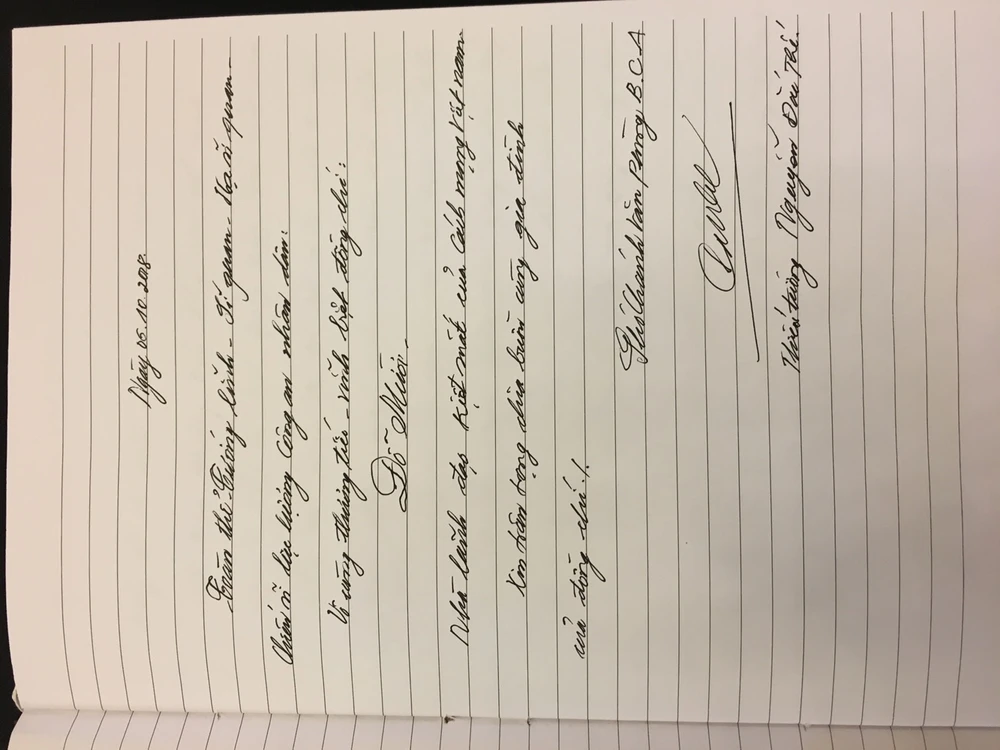 Ngày 05.10.2018.
Toàn thể Tướng lĩnh - Sĩ quan - Hạ sĩ quan -
Chiến sĩ lực lượng Công an nhân dân:
Vô cùng thương tiếc - vĩnh biệt đồng chí:
Đỗ Mười
Nhà lãnh đạo kiệt xuất của Cách mạng Việt Nam
Xin trân trọng chia buồn cùng gia đình
của đồng chí!
Phó Chánh Văn phòng B.C.A
Thiếu tướng Nguyễn Đắc Thế.